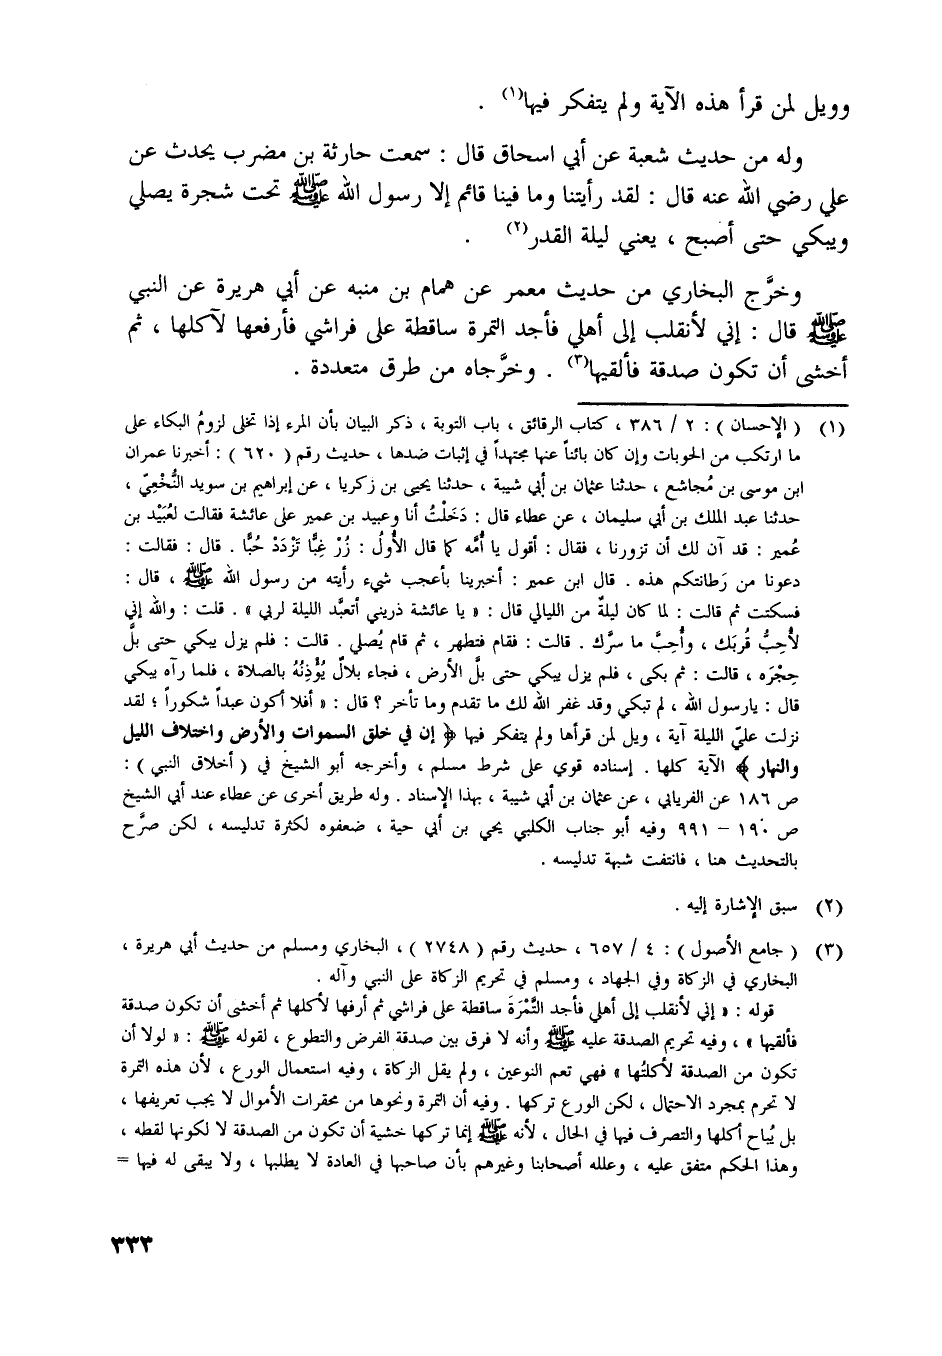 وويل لمن قرأ هذه الآية ولم يتفكر فيها(١) .
وله من حديث شعبة عن أبي اسحاق قال : سمعت حارثة بن مضرب يحدث عن
علي رضي الله عنه قال : لقد رأيتنا وما فينا قائم إلا رسول الله ﷺ تحت شجرة يصلي
ويبكي حتى أصبح ، يعني ليلة القدر(٢) .
وخرَّج البخاري من حديث معمر عن همام بن منبه عن أبي هريرة عن النبي
ﷺ قال : إني لأنقلب إلى أهلي فأجد التمرة ساقطة على فراشي فأرفعها لآكلها ، ثم
أخشى أن تكون صدقة فألقيها(٣) . وخرَّجاه من طرق متعددة .
(١) ( الإحسان ) : ٢ / ٣٨٦ ، كتاب الرقائق ، باب التوبة ، ذكر البيان بأن المرء إذا تخلى لزومُ البكاء على
ما ارتكب من الحوبات وإن كان بائناً عنها مجتهداً في إثبات ضدها ، حديث رقم ( ٦٢٠ ) : أخبرنا عمران
ابن موسى بن مُجاشع ، حدثنا عثمان بن أبي شيبة ، حدثنا يحيى بن زكريا ، عن إبراهيم بن سويد النُّخْعِيّ ،
حدثنا عبد الملك بن أبي سليمان ، عن عطاء قال : دَخَلْتُ أنا وعبيد بن عمير على عائشة فقالت لعُبَيْد بن
عُمير : قد آن لك أن تزورنا ، فقال : أقول يا أمَّه كما قال الأُولُ : زُرْ غِبًّا تَزْدَدْ حُبًّا . قال : فقالت :
دعونا من رَطانتكم هذه . قال ابن عمير : أخبرينا بأعجب شيء رأيته من رسول الله ﷺ ، قال :
فسكتت ثم قالت : لما كان ليلةٌ من الليالي قال : « يا عائشة ذريني أتعبَّد الليلة لربي » . قلت : والله إني
لأُحِبُّ قُربَك ، وأُحِبَّ ما سرَّك . قالت : فقام فتطهر ، ثم قام يُصلي . قالت : فلم يزل يبكي حتى بلَّ
حِجْرَه ، قالت : ثم بكى ، فلم يزل يبكي حتى بلَّ الأرض ، فجاء بلالٌ يُؤْذِنُهُ بالصلاة ، فلما رآه يبكي
قال : يارسول الله ، لم تبكي وقد غفر الله لك ما تقدم وما تأخر ؟ قال : « أفلا أكون عبداً شكوراً ؛ لقد
نزلت عليّ الليلة آية ، ويل لمن قرأها ولم يتفكر فيها ﴿ إن في خلق السموات والأرض واختلاف الليل
والنهار ﴾ الآية كلها . إسناده قوي على شرط مسلم ، وأخرجه أبو الشيخ في ( أخلاق النبي ) :
ص ١٨٦ عن الفريابي ، عن عثمان بن أبي شيبة ، بهذا الإسناد . وله طريق أخرى عن عطاء عند أبي الشيخ
ص ١٩٠ – ٩٩١ وفيه أبو جناب الكلبي يحي بن أبي حية ، ضعفوه لكثرة تدليسه ، لكن صرَّح
بالتحديث هنا ، فانتفت شبهة تدليسه .
(٢) سبق الإشارة إليه .
(٣) ( جامع الأصول ) : ٤ / ٦٥٧ ، حديث رقم ( ٢٧٤٨ ) ، البخاري ومسلم من حديث أبي هريرة ،
البخاري في الزكاة وفي الجهاد ، ومسلم في تحريم الزكاة على النبي وآله .
قوله : « إني لأنقلب إلى أهلي فأجد التَّمْرَةَ ساقطة على فراشي ثم أرفها لأكلها ثم أخشى أن تكون صدقة
فألقيها » ، وفيه تحريم الصدقة عليه ﷺ وأنه لا فرق بين صدقة الفرض والتطوع ، لقوله ﷺ : « لولا أن
تكون من الصدقة لأكلتُها » فهي تعم النوعين ، ولم يقل الزكاة ، وفيه استعمال الورع ، لأن هذه التمرة
لا تحرم بمجرد الاحتمال ، لكن الورع تركها . وفيه أن التمرة ونحوها من محقرات الأموال لا يجب تعريفها ،
بل يُباح أكلها والتصرف فيها في الحال ، لأنه ﷺ إنما تركها خشية أن تكون من الصدقة لا لكونها لقطه ،
وهذا الحكم متفق عليه ، وعلله أصحابنا وغيرهم بأن صاحبها في العادة لا يطلبها ، ولا يبقى له فيها =
٣٣٣